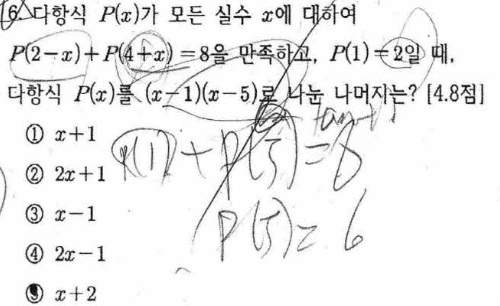 6. 다항식 P(x)가 모든 실수 x에 대하여
P(2-x)+P(4+x)=8을 만족하고, P(1)=2일 때,
다항식 P(x)를 (x-1)(x-5)로 나눈 나머지는? [4.8점]
① x+1
② 2x+1
③ x-1
④ 2x-1
⑤ x+2
P(1)+P(5)=8
P(5)=6